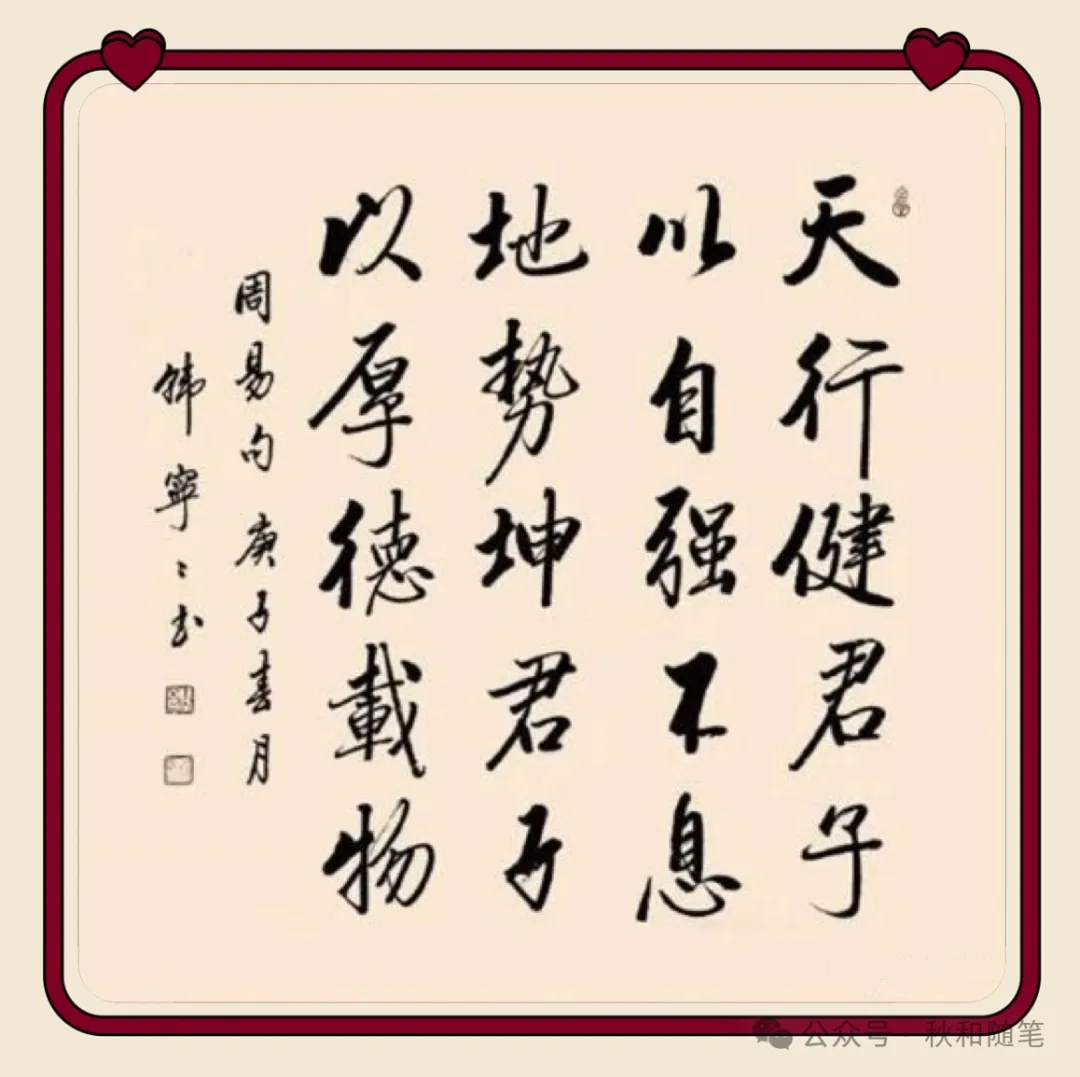 天行健君子
以自强不息
地势坤君子
以厚德载物
周易句 庚子春月
韩宁宁书
公众号·秋和随笔